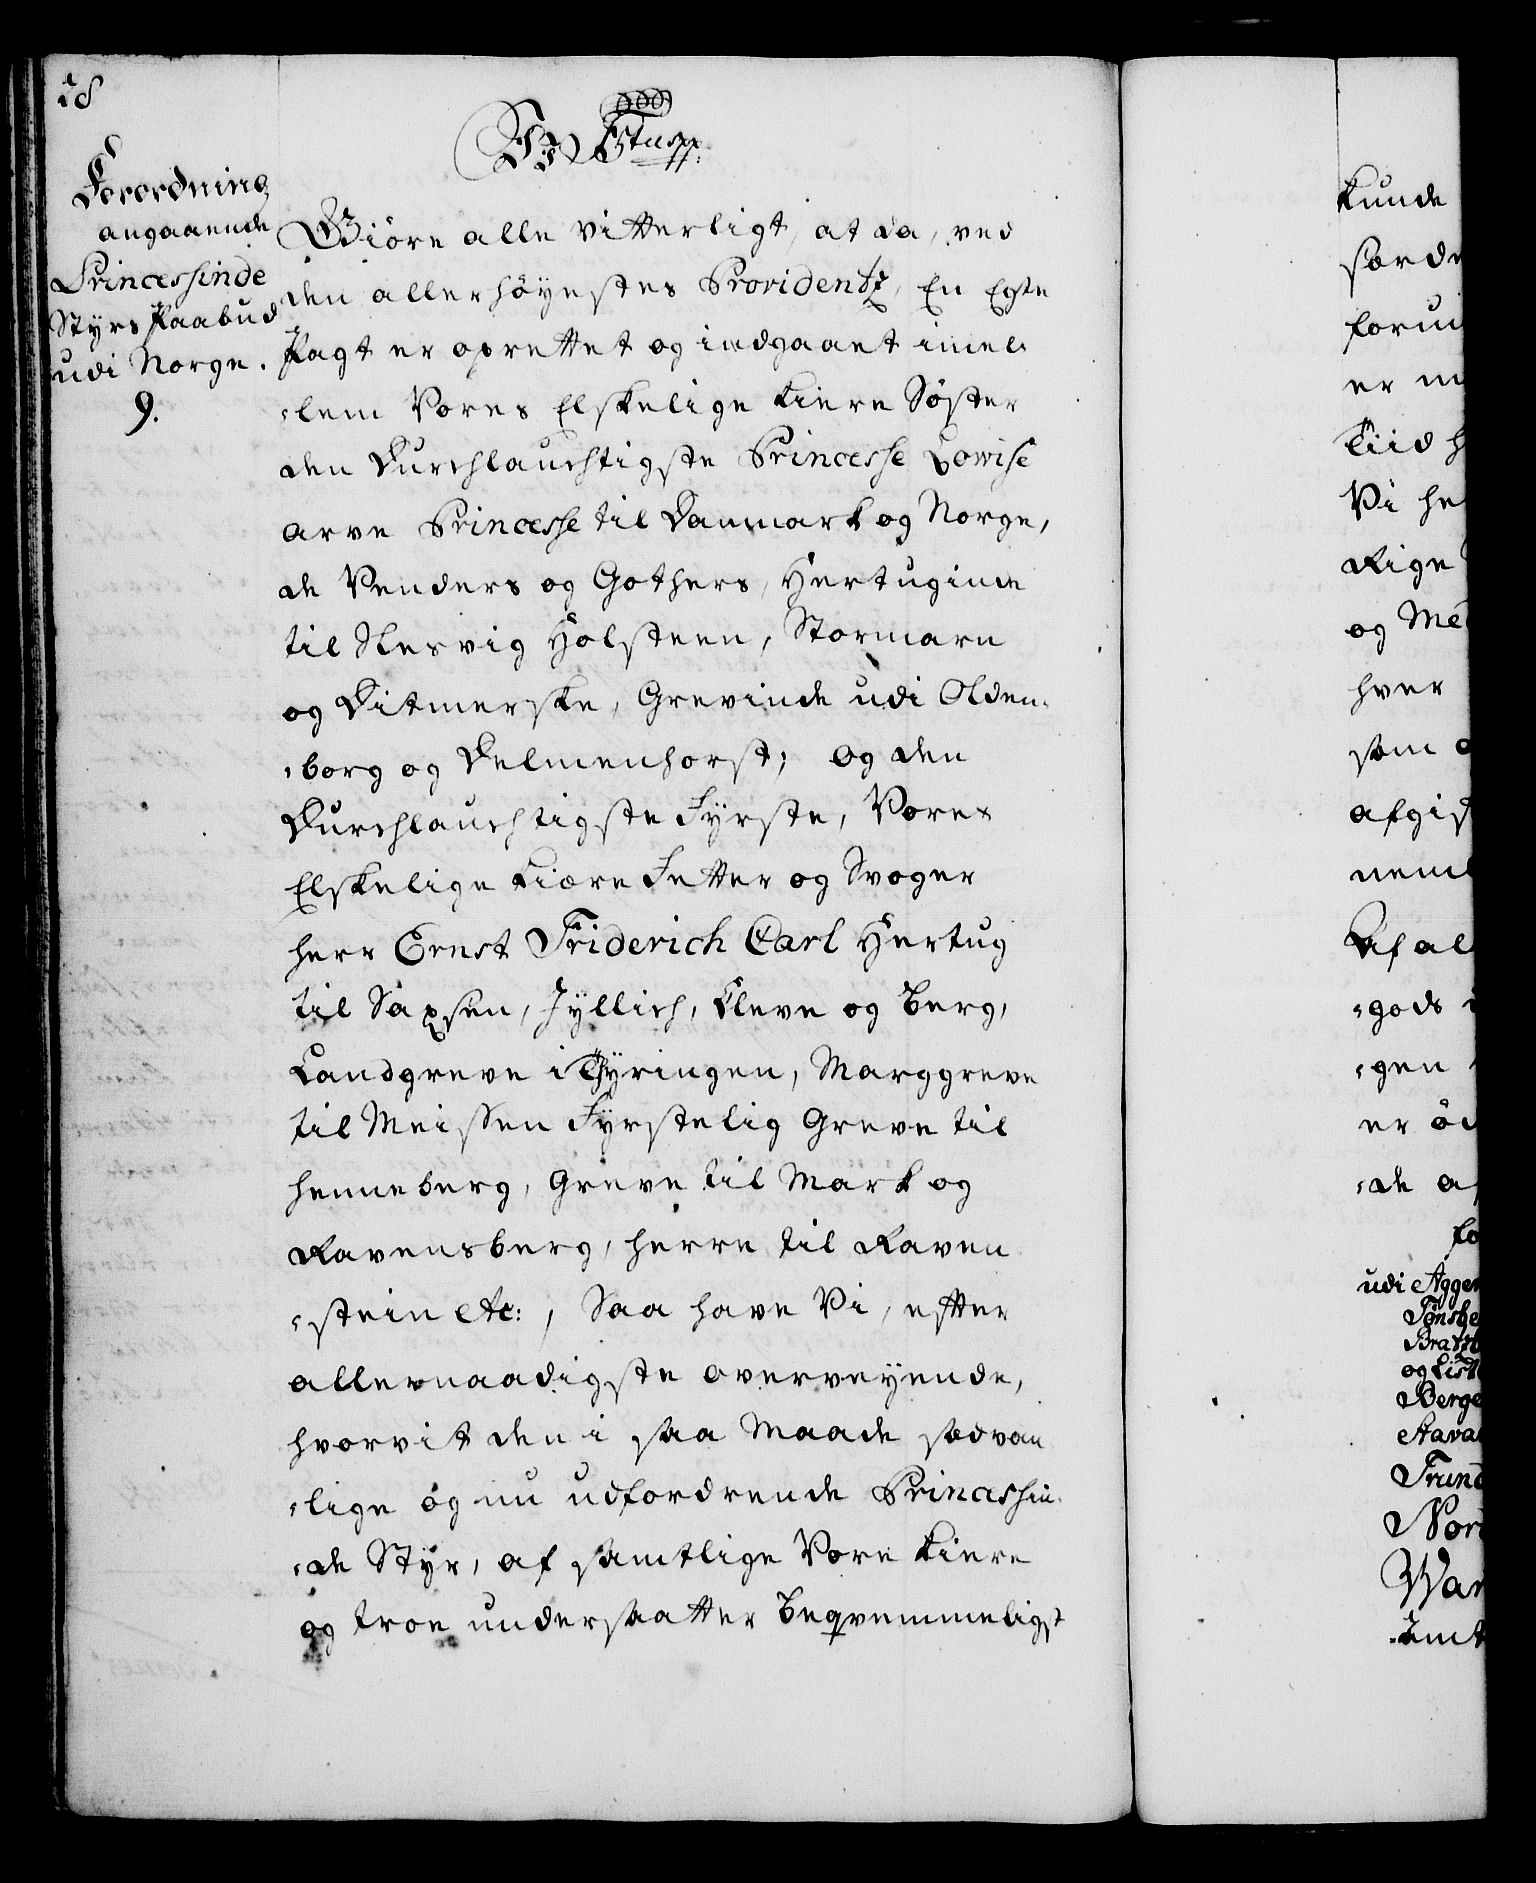 18
Forordning
angaaende
Princessinde
Styrs Paabud
udi Norge.
9.
Giöre alle vitterligt, at da, ved
den allerhöyestes Providentz, En Egte
Pagt er oprettet og indgaaet imel-
-lem Vores Elskelige kiere Söster
den Durchlauchtigste Princesse Lovise
arve Princesse til Danmark og Norge,
de Venders og Gothers, Hertuginde
til Slesvig Holsteen, Stormarn
og Ditmersken, Grevinde udi Olden-
-borg og Delmenhorst; og den
Durchlauchtigste Fyrste, Vores
Elskelige kiære Fetter og Svoger
herr Ernst Friderich Carl Hertug
til Saxsen, Jyllich, Cleve og Berg,
Landgreve i Thyringen, Marggreve
til Meissen Fyrstelig Greve til
Henneberg, Greve til Mark og
Ravensberg, Herre til Raven-
-stein etc:, Saa have Vi, efter
allernaadigste overveyende,
hvorvit den i saa Maade sædvan-
-lige og nu udfordrende Princessin-
-de Styr, af samtlige Vore kiere
og troe undersaatter beqvemmeligst
kunde
er
Tiid
Vi
Rige
og
hver
som
-gods
-gen
er
-de
udi
og